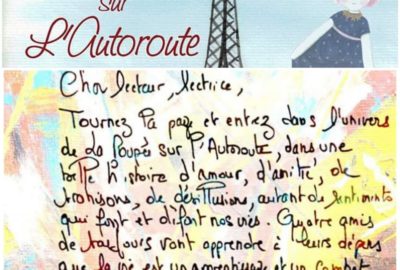 sur
L'Autoroute
Cher lecteur, lectrice,
Tournez la page et entrez dans l'univers
de La Poupée sur l'Autoroute, dans une
belle histoire d'amour, d'amitié, de
trahisons, de désillusions, autant de sentiments
qui font et défont nos vies. Quatre amis
de toujours vont apprendre à leurs dépens
que la vie est un apprentissage et un combat